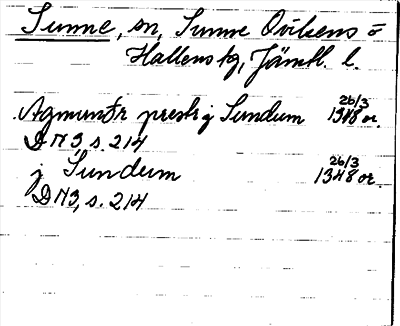 Sunne, sn, Sunne Ovikens o
Hallens tg, Jämtl. l.
Agmundr prestr j Sundum 26/3 1348 or.
DN 3, s. 214
j Sundum 26/3 1348 or.
DN 3, s. 214